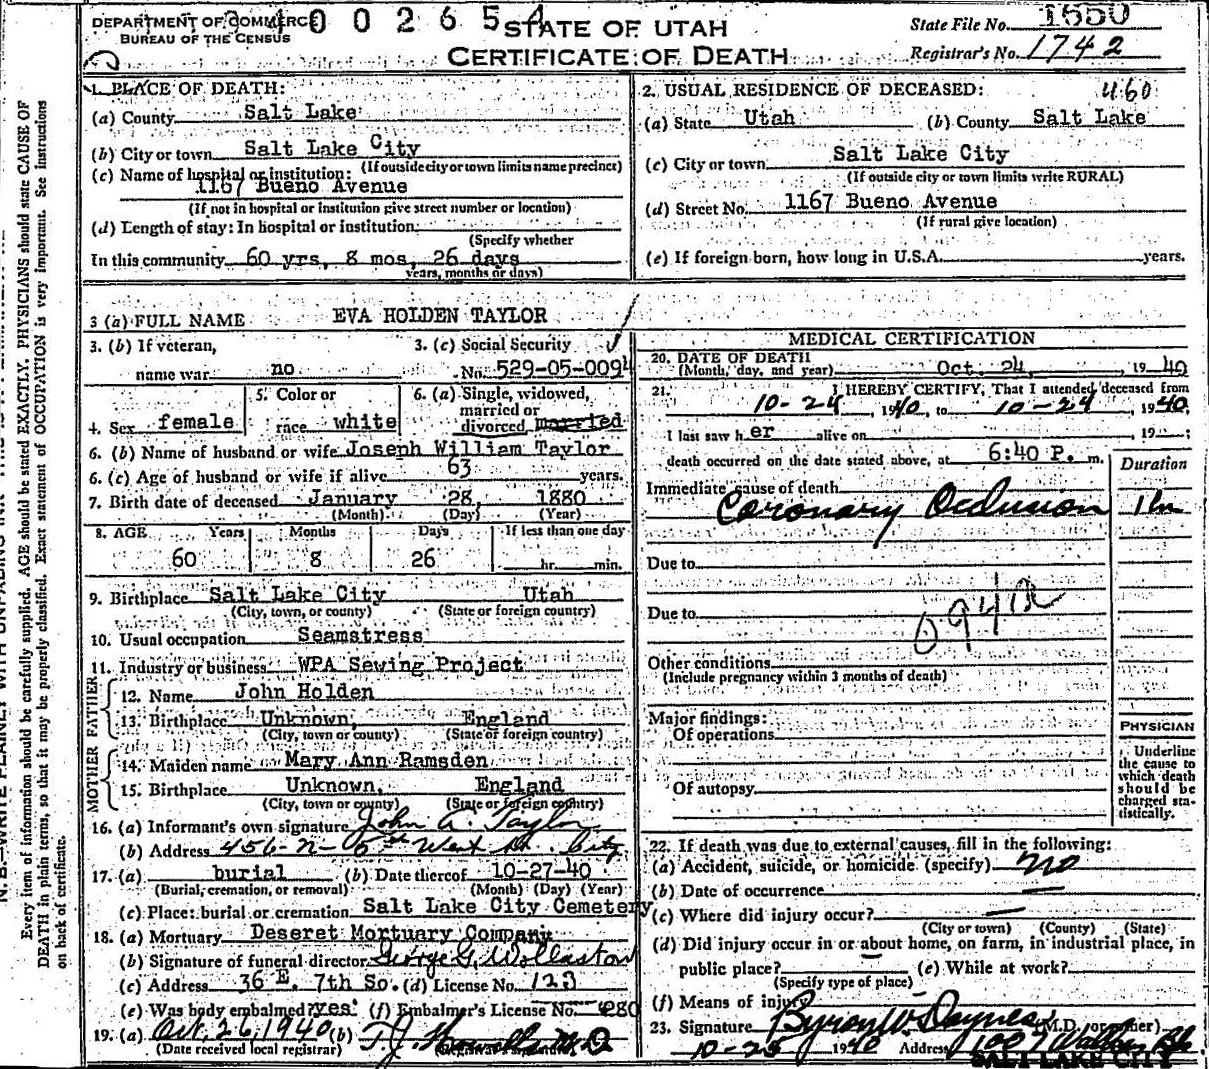 DEPARTMENT OF COMMERCE
BUREAU OF THE CENSUS
STATE OF UTAH
CERTIFICATE OF DEATH
State File No. 1650
Registrar's No. 1742
1. PLACE OF DEATH:
(a) County Salt Lake
(b) City or town Salt Lake City
(If outside city or town limits name precinct)
(c) Name of hospital or institution:
1167 Bueno Avenue
(If not in hospital or institution give street number or location)
(d) Length of stay: In hospital or institution
(Specify whether
In this community 60 yrs, 8 mos, 26 days
years, months or days)
2. USUAL RESIDENCE OF DECEASED: 460
(a) State Utah (b) County Salt Lake
(c) City or town Salt Lake City
(If outside city or town limits write RURAL)
(d) Street No. 1167 Bueno Avenue
(If rural give location)
(e) If foreign born, how long in U.S.A. years.
3 (a) FULL NAME EVA HOLDEN TAYLOR
3. (b) If veteran,
name war no
3. (c) Social Security
No. 529-05-0094
4. Sex female
5. Color or
race white
6. (a) Single, widowed,
married or
divorced married
6. (b) Name of husband or wife Joseph William Taylor
6. (c) Age of husband or wife if alive 63 years.
7. Birth date of deceased January 28, 1880
(Month) (Day) (Year)
8. AGE Years Months Days If less than one day
60 8 26 hr. min.
9. Birthplace Salt Lake City Utah
(City, town, or county) (State or foreign country)
10. Usual occupation Seamstress
11. Industry or business WPA Sewing Project
FATHER
12. Name John Holden
13. Birthplace Unknown, England
(City, town or county) (State or foreign country)
MOTHER
14. Maiden name Mary Ann Ramsden
15. Birthplace Unknown, England
(City, town or county) (State or foreign country)
16. (a) Informant's own signature John A. Taylor
(b) Address 456-N-5th West St. City
17. (a) burial (b) Date thereof 10-27-40
(Burial, cremation, or removal) (Month) (Day) (Year)
(c) Place: burial or cremation Salt Lake City Cemetery
18. (a) Mortuary Deseret Mortuary Company
(b) Signature of funeral director George G. Wollaston
(c) Address 36 E. 7th So. (d) License No. 123
(e) Was body embalmed? yes. (f) Embalmer's License No. 280
19. (a) Oct. 26, 1940 (b) T. J. Howells M D
(Date received local registrar)
MEDICAL CERTIFICATION
20. DATE OF DEATH
(Month, day, and year) Oct. 24, 1940
21. I HEREBY CERTIFY, That I attended deceased from
10-24, 1940, to 10-24, 1940,
I last saw her alive on , 19 ;
death occurred on the date stated above, at 6:40 P. m.
Duration
Immediate cause of death
Coronary Occlusion 1 hr
Due to
Due to
094a
Other conditions
(Include pregnancy within 3 months of death)
Major findings:
Of operations
Of autopsy
PHYSICIAN
Underline
the cause to
which death
should be
charged sta-
tistically.
22. If death was due to external causes, fill in the following:
(a) Accident, suicide, or homicide (specify) no
(b) Date of occurrence —
(c) Where did injury occur? —
(City or town) (County) (State)
(d) Did injury occur in or about home, on farm, in industrial place, in
public place? — (e) While at work?
(Specify type of place)
(f) Means of injury
23. Signature Byron W. Daynes (M.D. or other)
10-25 1940 Address 1007 Walker Bk.
SALT LAKE CITY
Every item of information should be carefully supplied. AGE should be stated EXACTLY. PHYSICIANS should state CAUSE OF
DEATH in plain terms, so that it may be properly classified. Exact statement of OCCUPATION is very important. See instructions
on back of certificate.